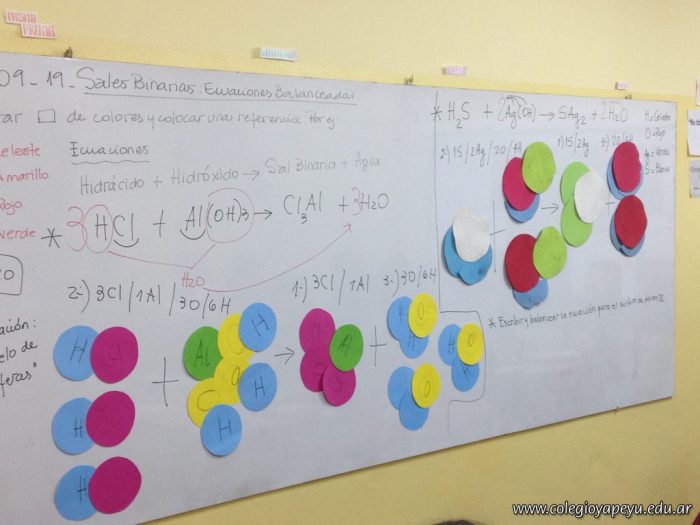 09-19-Sales Binarias. Ecuaciones Balanceadas
de colores y colocar una referencia
Ecuaciones
Amarillo
Rojo
Verde
Hidrácido + Hidróxido → Sal Binaria + Agua
* 3HCl + Al(OH)3 → Cl3Al + 3H2O
H2O
2-) 3Cl/1Al/3O/6H
1-) 3Cl/1Al 3-) 3O/6H
H
H
H
Al
O
O
H
H
H
Al
H
O
H
O
H
O
H
* H2S + 2Ag(OH) → SAg2 + 2H2O
H=Celeste
O=Rojo
Ag=Verde
S=Blanco
1-) 1S/2Ag
* Escribir y balancear la ecuación para el sulfuro de
www.colegioyapeyu.edu.ar